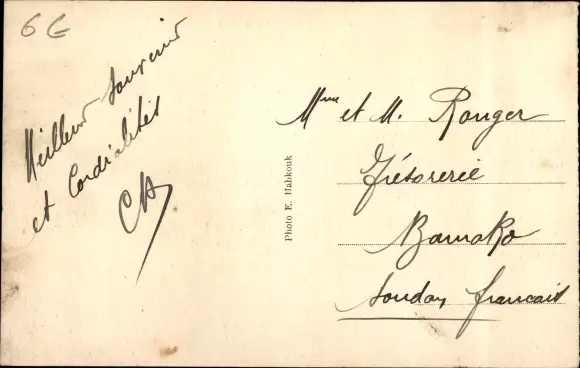 6 €
Meilleur souvenir
et Cordialités
CH
Photo E. Habkouk
Mme et M. Ronger
Trésorerie
Bamako
Soudan français